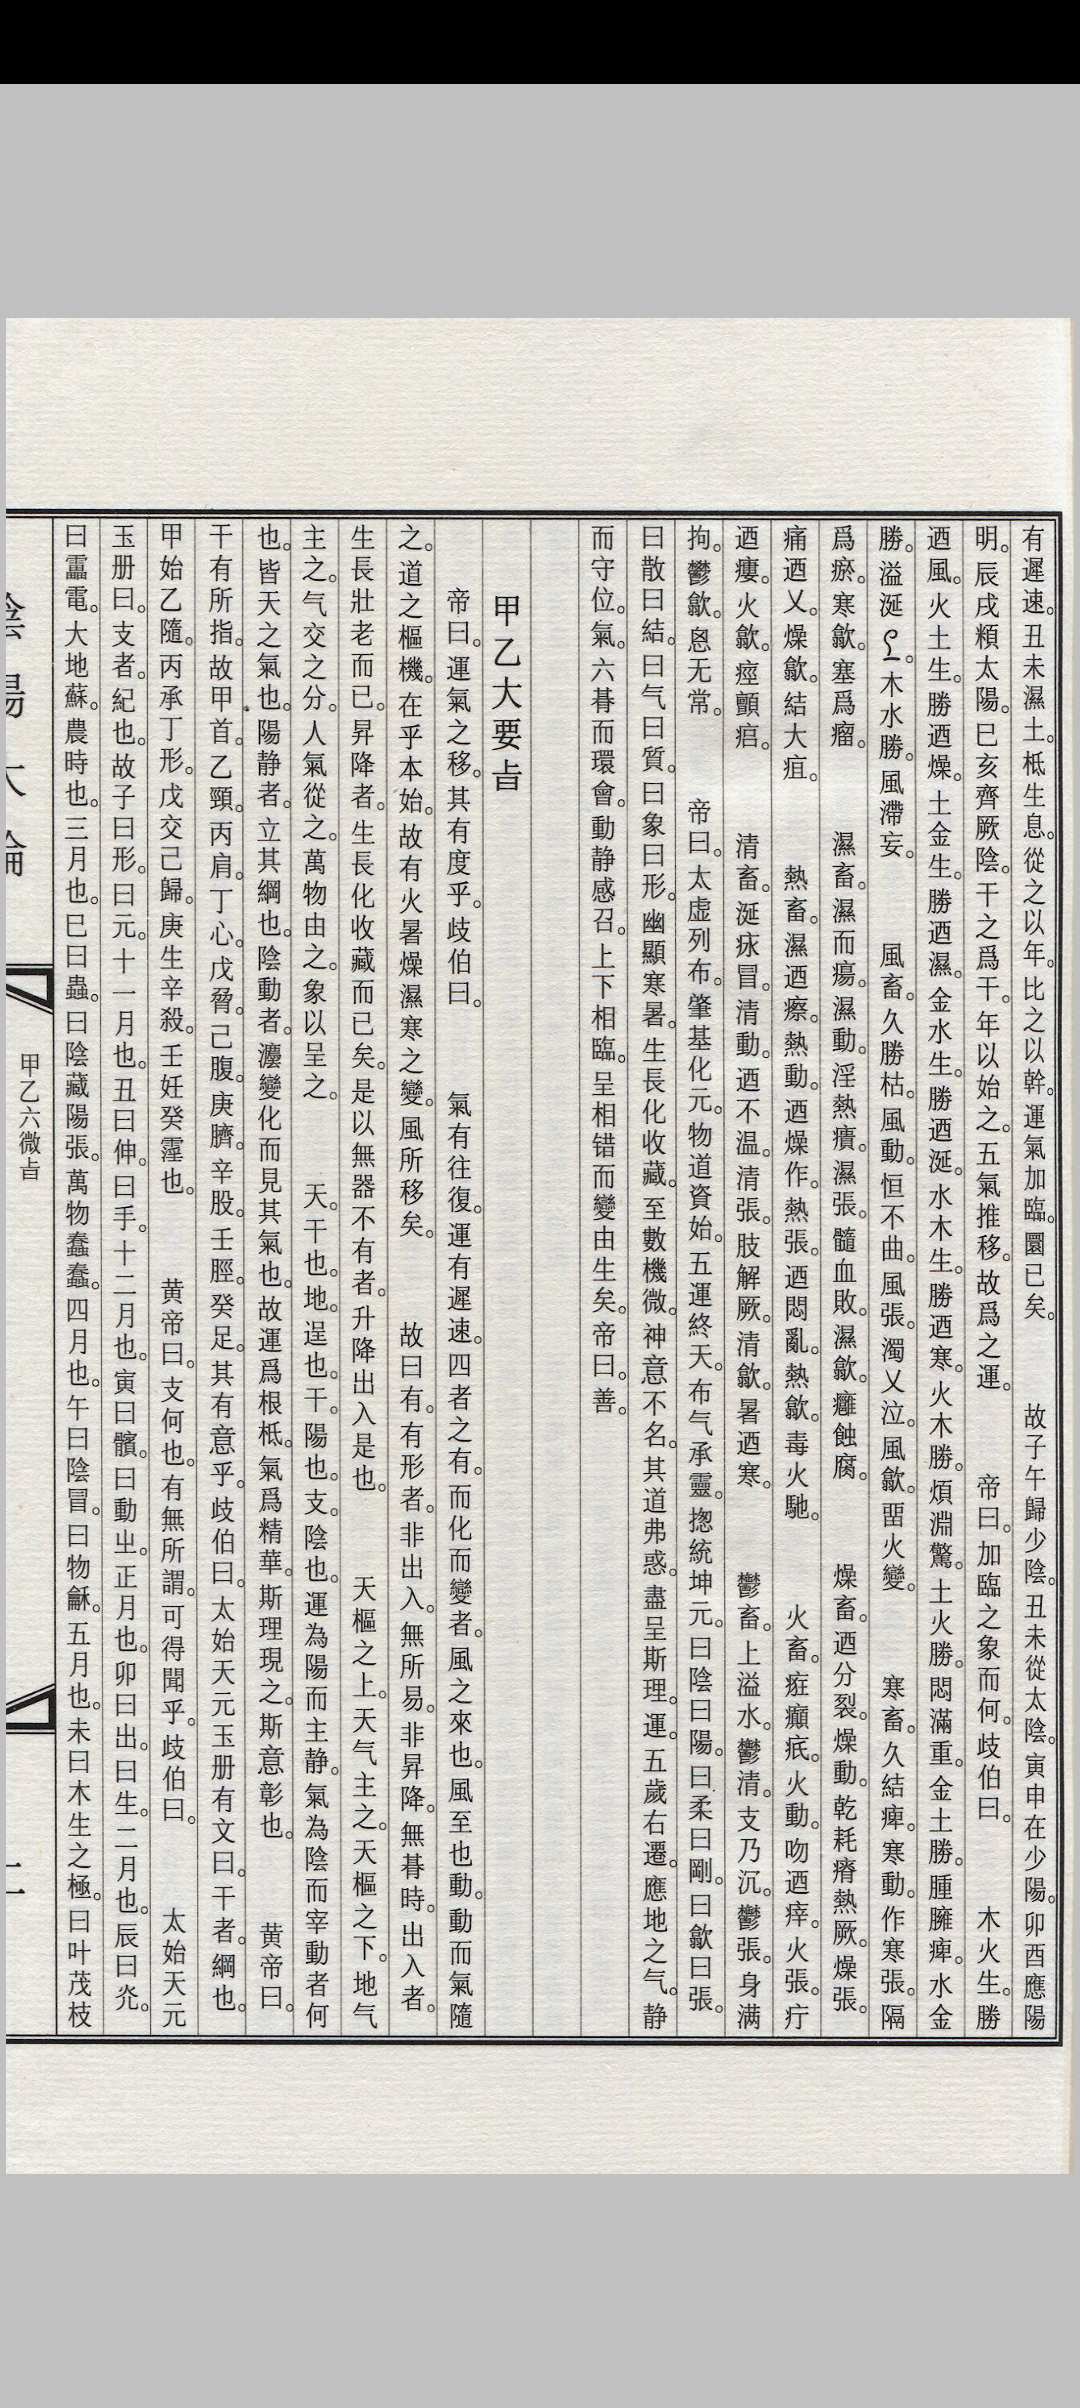 有遲速。丑未濕土。柢生息。從之以年。比之以幹。運氣加臨。圜已矣。 故子午歸少陰。丑未從太陰。寅申在少陽。卯酉應陽
明。辰戌頪太陽。巳亥齊厥陰。干之爲干。年以始之。五氣推移。故爲之運。 帝曰。加臨之象而何。歧伯曰。 木火生。勝
迺風。火土生。勝迺燥。土金生。勝迺濕。金水生。勝迺涎。水木生。勝迺寒。火木勝。煩淵驚。土火勝。悶滿重。金土勝。腫臃痺。水金
勝。溢涎。木水勝。風滯妄。 風畜。久勝枯。風動。恒不曲。風張。濁乂泣。風歙。畱火變。 寒畜。久結痺。寒動。作寒張。隔
爲瘀。寒歙。塞爲瘤。 濕畜。濕而瘍。濕動。淫熱癀。濕張。髓血敗。濕歙。癰蝕腐。 燥畜。迺分裂。燥動。乾耗瘠熱厥。燥張。
痛迺乂。燥歙。結大疽。 熱畜。濕迺瘵。熱動。迺燥作。熱張。迺悶亂。熱歙。毒火馳。 火畜。疰癲疧。火動。吻迺痒。火張。疔
迺瘻。火歙。痙顫痦。 清畜。涎痳冒。清動。迺不温。清張。肢解厥。清歙。暑迺寒。 鬱畜。上溢水。鬱清。支乃沉。鬱張。身满
拘。鬱歙。恖无常。 帝曰。太虛列布。肇基化元。物道資始。五運終天。布气承靈。揔統坤元。曰陰曰陽。曰柔曰剛。曰歙曰張。
曰散曰結。曰气曰質。曰象曰形。幽顯寒暑。生長化收藏。至數機微。神意不名。其道弗惑。盡呈斯理。運。五歲右遷。應地之气。静
而守位。氣。六朞而環會。動静感召。上下相臨。呈相错而變由生矣。帝曰。善。
甲乙大要旨
帝曰。運氣之移。其有度乎。歧伯曰。 氣有往復。運有遲速。四者之有。而化而變者。風之來也。風至也動。動而氣隨
之。道之樞機。在乎本始。故有火暑燥濕寒之變。風所移矣。 故曰有。有形者。非出入。無所易。非昇降。無朞時。出入者。
生長壯老而已。昇降者。生長化收藏而已矣。是以無器不有者。升降出入是也。 天樞之上。天气主之。天樞之下。地气
主之。气交之分。人氣從之。萬物由之。象以呈之。 天。干也。地。逞也。干。陽也。支。陰也。運為陽而主静。氣為陰而宰動者何
也。皆天之氣也。陽静者。立其綱也。陰動者。灋變化而見其氣也。故運爲根柢。氣爲精華。斯理現之。斯意彰也。 黄帝曰。
干有所指。故甲首。乙頸。丙肩。丁心。戊脅。己腹。庚臍。辛股。壬脛。癸足。其有意乎。歧伯曰。太始天元玉册有文曰。干者。綱也。
甲始乙隨。丙承丁形。戊交己歸。庚生辛殺。壬妊癸霪也。 黄帝曰。支何也。有無所謂。可得聞乎。歧伯曰。 太始天元
玉册曰。支者。紀也。故子曰形。曰元。十一月也。丑曰伸。曰手。十二月也。寅曰髕。曰動㞢。正月也。卯曰出。曰生。二月也。辰曰灮。
曰靁電。大地蘇。農時也。三月也。巳曰蟲。曰陰藏陽張。萬物蠢蠢。四月也。午曰陰冒。曰物龢。五月也。未曰木生之極。曰叶茂枝
陰陽大論
甲乙六微旨